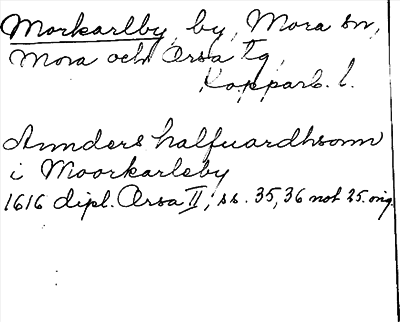 Morkarlby, by, Mora sn,
Mora och Orsa tg,
Kopparb. l.
Annders halfuardhsonn
i Moorkarleby
1616 dipl. Orsa II, ss. 35, 36 not 25. orig